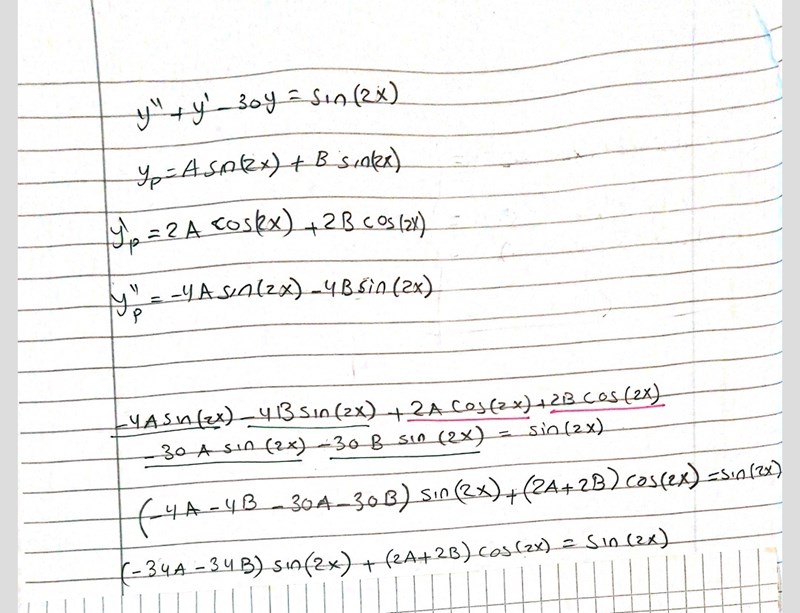 y'' + y' - 30y = sin(2x)
y_p = A sn(2x) + B sin(2x)
y'_p = 2A cos(2x) + 2B cos(2x)
y''_p = -4A sin(2x) - 4B sin(2x)
-4A sn(2x) - 4B sin(2x) + 2A cos(2x) + 2B cos(2x)
-30 A sin(2x) - 30 B sin(2x) = sin(2x)
(-4A - 4B - 30A - 30B) sin(2x) + (2A+2B) cos(2x) = sin(2x)
(-34A - 34B) sin(2x) + (2A+2B) cos(2x) = sin(2x)